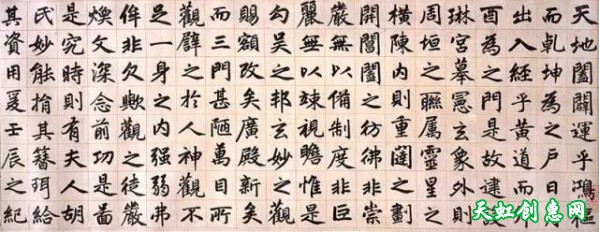 天地闔闢運乎鴻樞
而乹坤為之戶日月
出入經乎黃道而卯
酉為之門是故建設
琳宮摹憲玄象外則
周垣之聯属靈星之
橫陳內則重闥之劃
開閶闔之彷彿非崇
嚴無以備制度非巨
麗無以竦視瞻惟是
勾吳之邦玄妙之觀
賜額改矣廣殿新矣
而三門甚陋萬目所
觀譬之於人神觀不
足一身之內强弱弗
侔非欠歟觀之徒嚴
煥文深念前功是啚
是究時則有夫人胡
氏妙能捐其簪珥給
其資用爰壬辰之紀
天虹创惠网